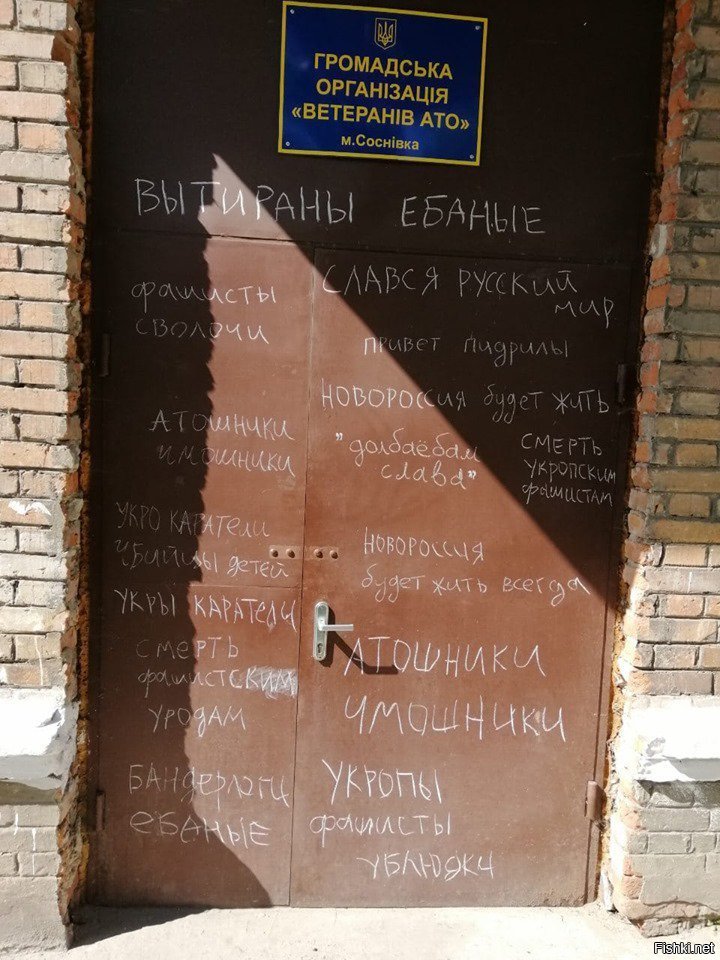 ГРОМАДСЬКА
ОРГАНІЗАЦІЯ
«ВЕТЕРАНІВ АТО»
м.Соснівка
ВЫТИРАНЫ ЕБАНЫЕ
фашисты
сволочи
АТОШНИКИ
ЧМОШНИКИ
УКРО КАРАТЕЛИ
УБИЙЦЫ детей
УКРЫ КАРАТЕЛИ
СМЕРТЬ
фашистским
УРОДАМ
БАНДЕРЛОГИ
ЕБАНЫЕ
СЛАВСЯ РУССКИЙ
МИР
ПРИВЕТ ПИДРИЛЫ
НОВОРОССИЯ будет ЖИТЬ
"долбаёбам
слава"
СМЕРТЬ
УКРОПСКИМ
фашистам
НОВОРОССИЯ
будет жить всегда
АТОШНИКИ
ЧМОШНИКИ
УКРОПЫ
фашисты
УБЛЮДКИ
Fishki.net